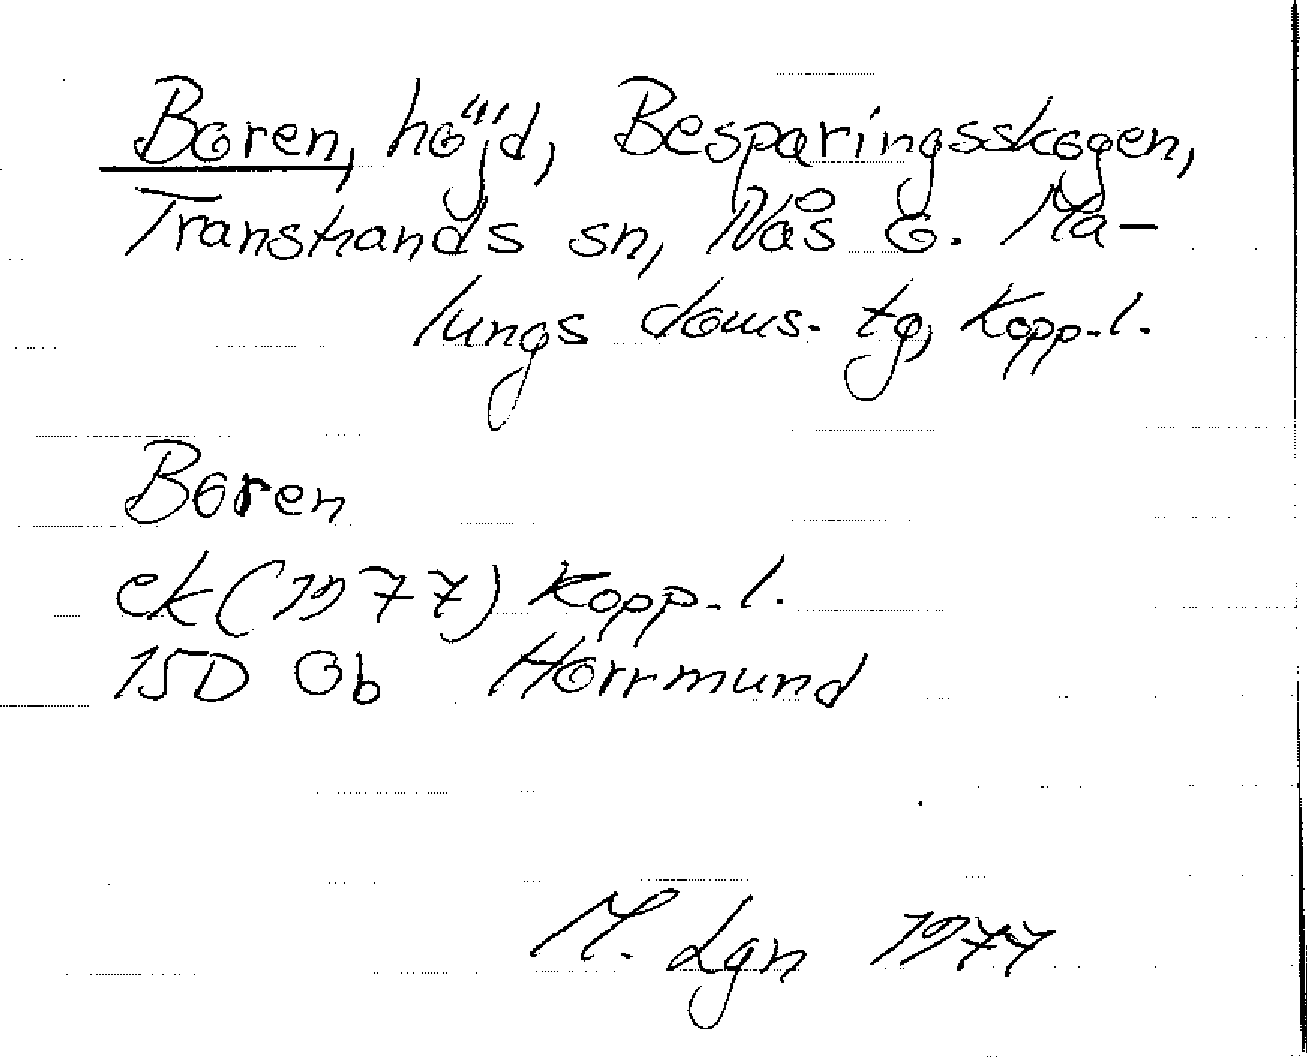 Boren, höjd, Besparingsskogen,
Transtrands sn, Nås o. Ma-
lungs doms. tg, Kopp. l.
Boren
ek (1977) Kopp. l.
15D Ob Horrmund
M. Lgn 1977